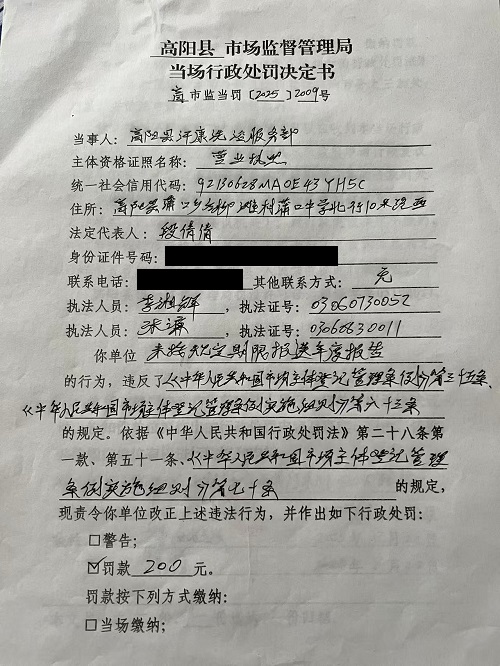 高阳县 市场监督管理局
当场行政处罚决定书
高 市监当罚〔2025〕2009号
当事人：高阳县 康 运服务部
主体资格证照名称：营业执照
统一社会信用代码：92130628MA0E43YH5C
住所：高阳县蒲口乡 村蒲口中学北行10米路西
法定代表人：段倩倩
身份证件号码：
联系电话： 其他联系方式：无
执法人员：李 ，执法证号：03060730052
执法人员： ，执法证号：03060830011
你单位 未按规定期限报送年度报告
的行为，违反了《中华人民共和国市场主体登记管理条例》第三十五条、
《中华人民共和国市场主体登记管理条例实施细则》第六十三条
的规定。依据《中华人民共和国行政处罚法》第二十八条第
一款、第五十一条、《中华人民共和国市场主体登记管理
条例实施细则》第七十条 的规定，
现责令你单位改正上述违法行为，并作出如下行政处罚：
□警告；
☑罚款 200 元。
罚款按下列方式缴纳：
□当场缴纳；